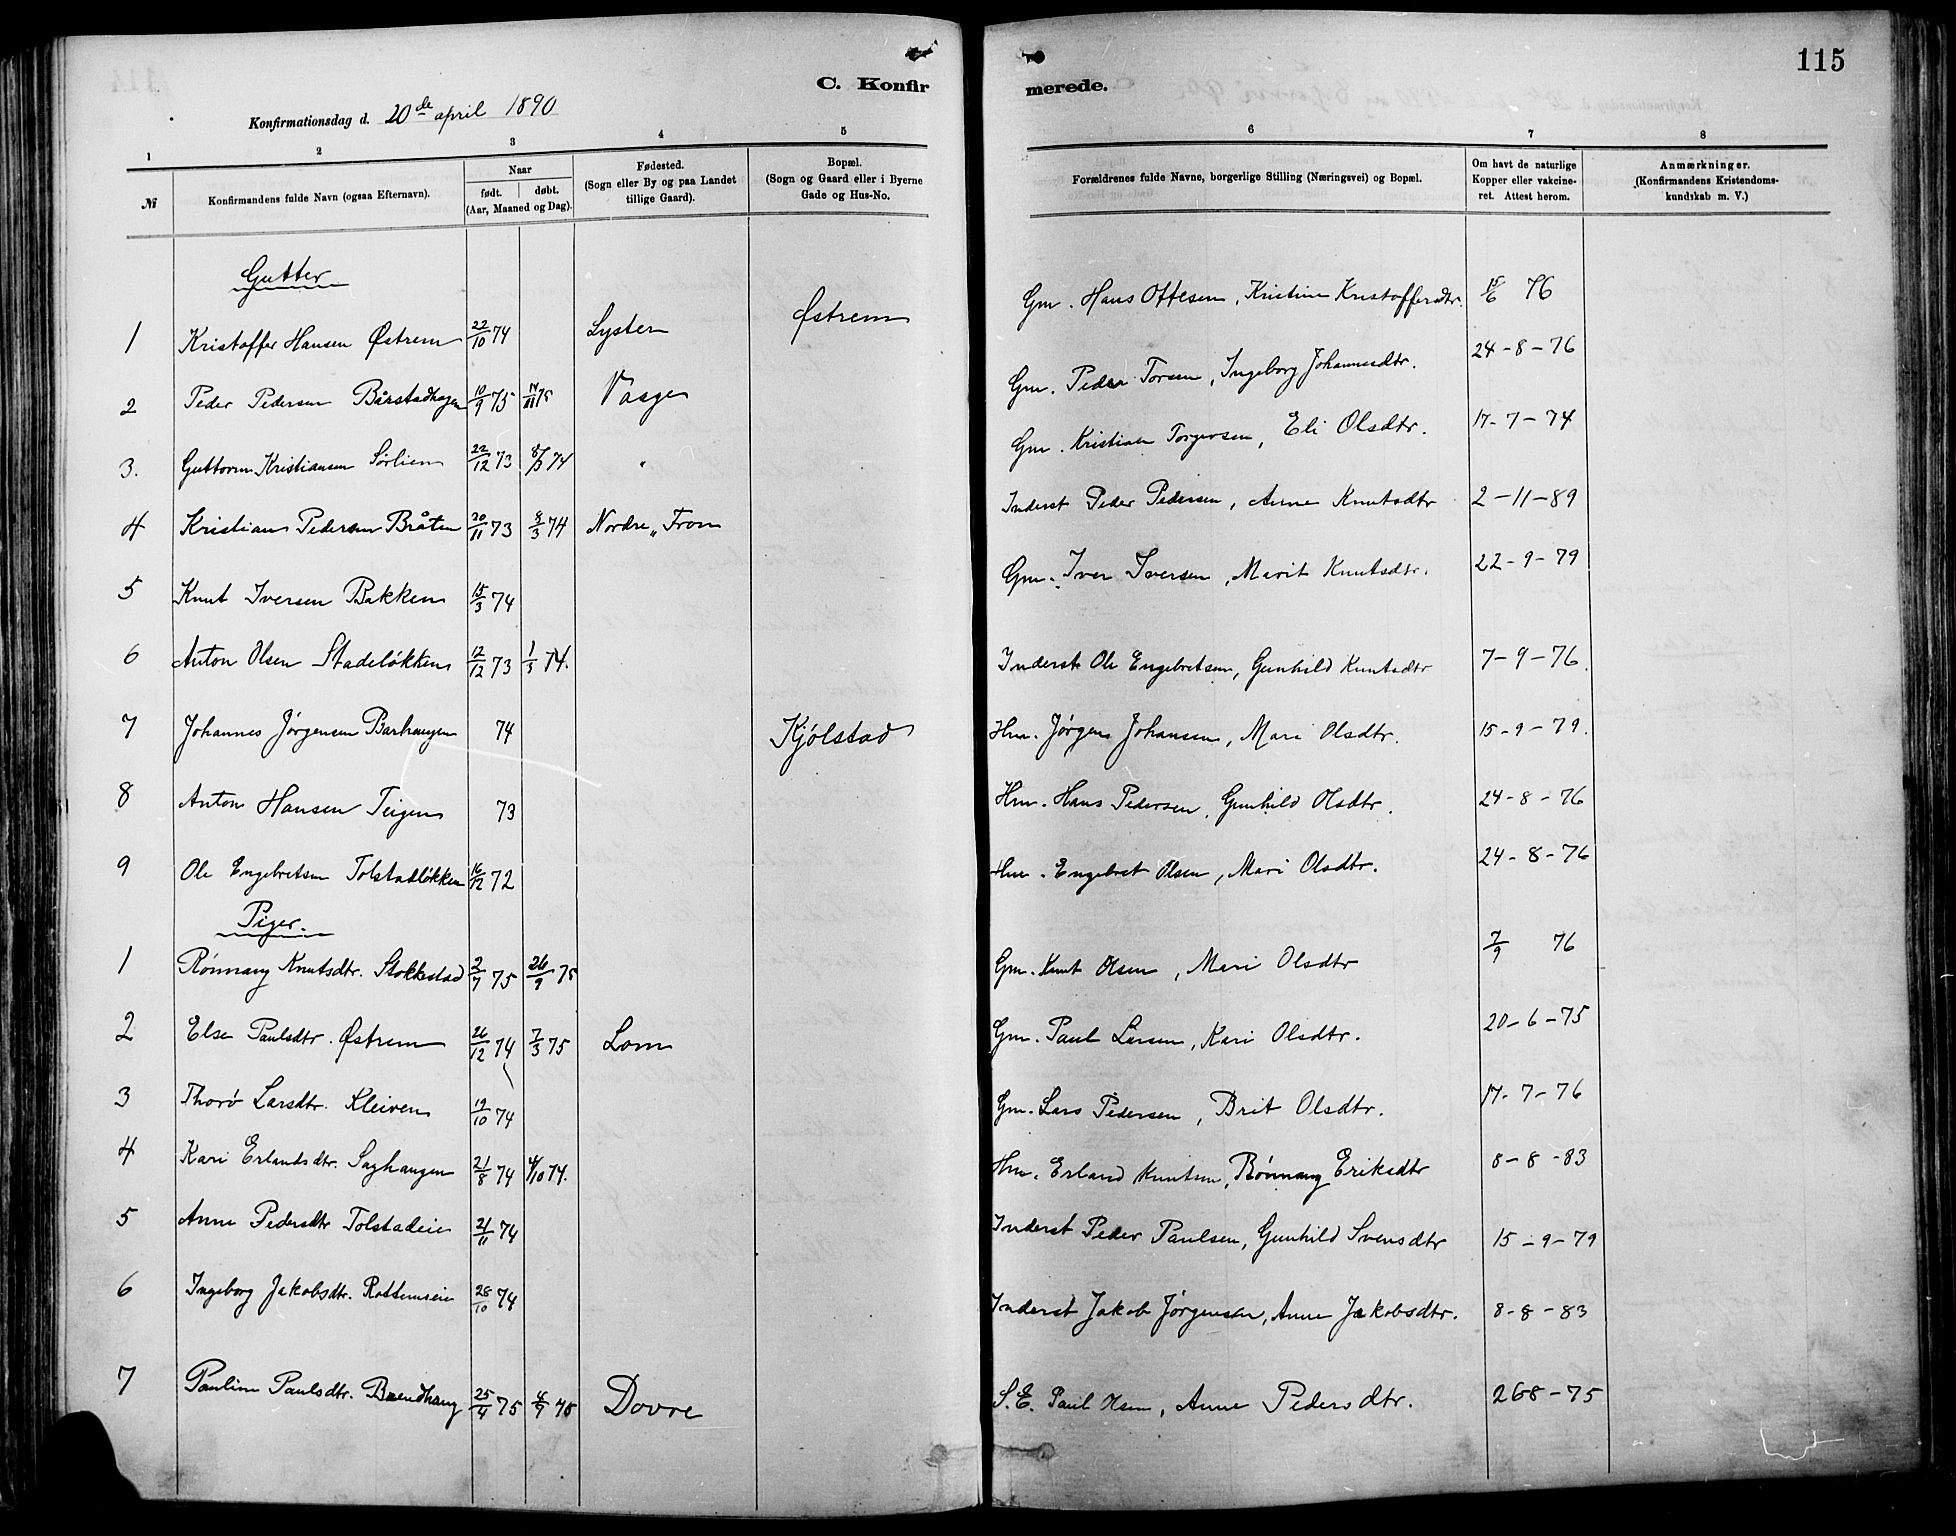 115
C. Konfirmerede.
Konfirmationsdag d. 20de april 1890
1 2 3 4 5 6 7 8
№ Konfirmandens fulde Navn (ogsaa Efternavn). Naar født. døbt. (Aar, Maaned og Dag). Fødested. (Sogn eller By og paa Landet tillige Gaard). Bopæl. (Sogn og Gaard eller i Byerne Gade og Hus-No. Forældrenes fulde Navne, borgerlige Stilling (Næringsvei) og Bopæl. Om havt de naturlige Kopper eller vakcineret. Attest herom. Anmærkninger. (Konfirmandens Kristendomskundskab m. V.)
Gutter
1 Kristoffer Hansen Østrem 22/10 74 Lyster Østrem Gm. Hans Ottesen, Kristine Kristoffersdtr. 76
2 Peder Pedersen Bårstadhagen 10/9 75 14/11 75 Vaage Gm. Peder Torsen, Ingeborg Johannesdtr. 24-8-76
3. Guttorm Kristiansen Sörlien 22/12 73 8/3 74 " Gm. Kristian Torgersen, Eli Olsdtr. 17-7-74
4 Kristian Pedersen Bråten 20/11 73 8/3 74 Nordre „ Fron Inderst Peder Pedersen, Anne Knutsdtr 2-11-89
5 Knut Iversen Bakken 15/3 74 Gm. Iver Iversen, Marit Knutsdtr. 22-9-79
6 Anton Olsen Stadeløkken 12/12 73 1/3 74. Inderst Ole Engebretsen, Gunhild Knutsdtr 7-9-76.
7 Johannes Jørgensen Barhaugen 74 Kjølstad Hm. Jørgen Johansen, Mari Olsdtr. 15-9-79.
8 Anton Hansen Teigen 73 Hm. Hans Pedersen, Gunhild Olsdtr. 24-8-76
9 Ole Engebretsen Tolstadløkken 16/12 72 Hm. Engebret Olsen, Mari Olsdtr. 24-8-76
Piger.
1 Rönnaug Knutsdtr. Stokkestad 2/7 75 26/9 75 Gm. Knut Olsen, Mari Olsdtr 7/9 76
2 Else Paulsdtr. Østrem 26/12 74 7/3 75 Lom Gm. Paul Larsen, Kari Olsdtr. 20-6-75
3 Thorø Larsdtr. Kleiven 19/10 74 Gm. Lars Pedersen, Brit Olsdtr. 17-7-76
4 Kari Erlandsdtr. Saghaugen 21/8 74 4/10 74. Hm. Erland Knutsen, Rönnaug Eriksdtr 8-8-83
5 Anne Pedersdtr Tolstadeie 21/11 74 Inderst Peder Paulsen, Gunhild Svensdtr 15-9-79
6 Ingeborg Jakobsdtr. Rottemseie 28/10 74 Inderst Jakob Jørgensen, Anne Jakobsdtr. 8-8-83
7 Pauline Paulsdtr. Brendhaug 25/4 75 Dovre S.E. Paul Olsen, Anne Pedersdtr. 268-75